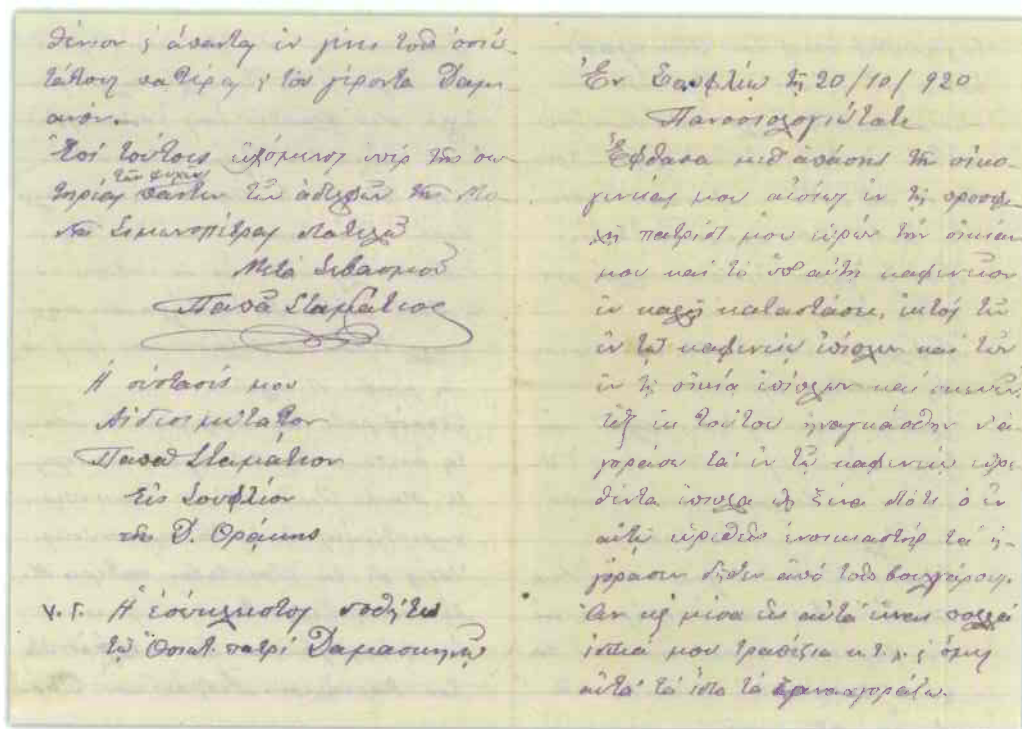 ἅπαντας ἐν γένει τοὺς ὁσιω-
τάτους πατέρας ϗ τὸν γέροντα Δαμι
ανόν.
Ἐπὶ τούτοις εὐχόμενος ὑπὲρ τῆς σω
τηρίας τῶν ψυχῶν πάντων τῶν ἀδελφῶν τῆς Μο
νῆς Σιμωνοπέτρας διατελῶ
Μετὰ Σεβασμοῦ
Παπᾶ Σταμάτιος
Ἡ σύστασίς μου
Αἰδεσιμώτατον
Παπᾶ Σταμάτιον
Εἰς Σουφλίον
τῆς Δ. Θράκης
Υ. Γ. Ἡ ἐσώκλειστος δοθήτω
τῷ Ὁσιωτ. πατρὶ Δαμασκηνῷ
Ἐν Σουφλίῳ τῇ 20/10/920
Πανοσιολογιώτατε
Ἔφθασα μεθ' ἁπάσης τῆς οἰκο-
γενείας μου αἰσίως ἐν τῇ προσφι
λῇ πατρίδι μου εὑρὼν τὴν οἰκίαν
μου καὶ τὸ ὑπ' αὐτὴν καφενεῖον
ἐν καλῇ καταστάσει, ἐκτὸς τῶν
ἐν τῷ καφενείῳ ἐπίπλων καὶ τῶν
ἐν τῇ οἰκίᾳ ἐπίπλων καὶ σκευῶν
ἐκ τούτου ἠναγκάσθην ν' ἀ
γοράσω τὰ ἐν τῷ καφενείῳ εὑρε
θέντα ἔπιπλα ὡς ξένα διότι ὁ ἐν
αὐτῷ εὑρεθεὶς ἐνοικιαστὴς τὰ ἠ-
γόρασεν δῆθεν ἀπὸ τοὺς βουλγάρους.
Ἂν ϗ μέσα εἰς αὐτὰ εἶναι πολλὰ
ἰδικά μου τραπέζια κ.τ.λ. ὅμως
αὐτὰ τὰ ἴδια τὰ ξαναγοράζω.